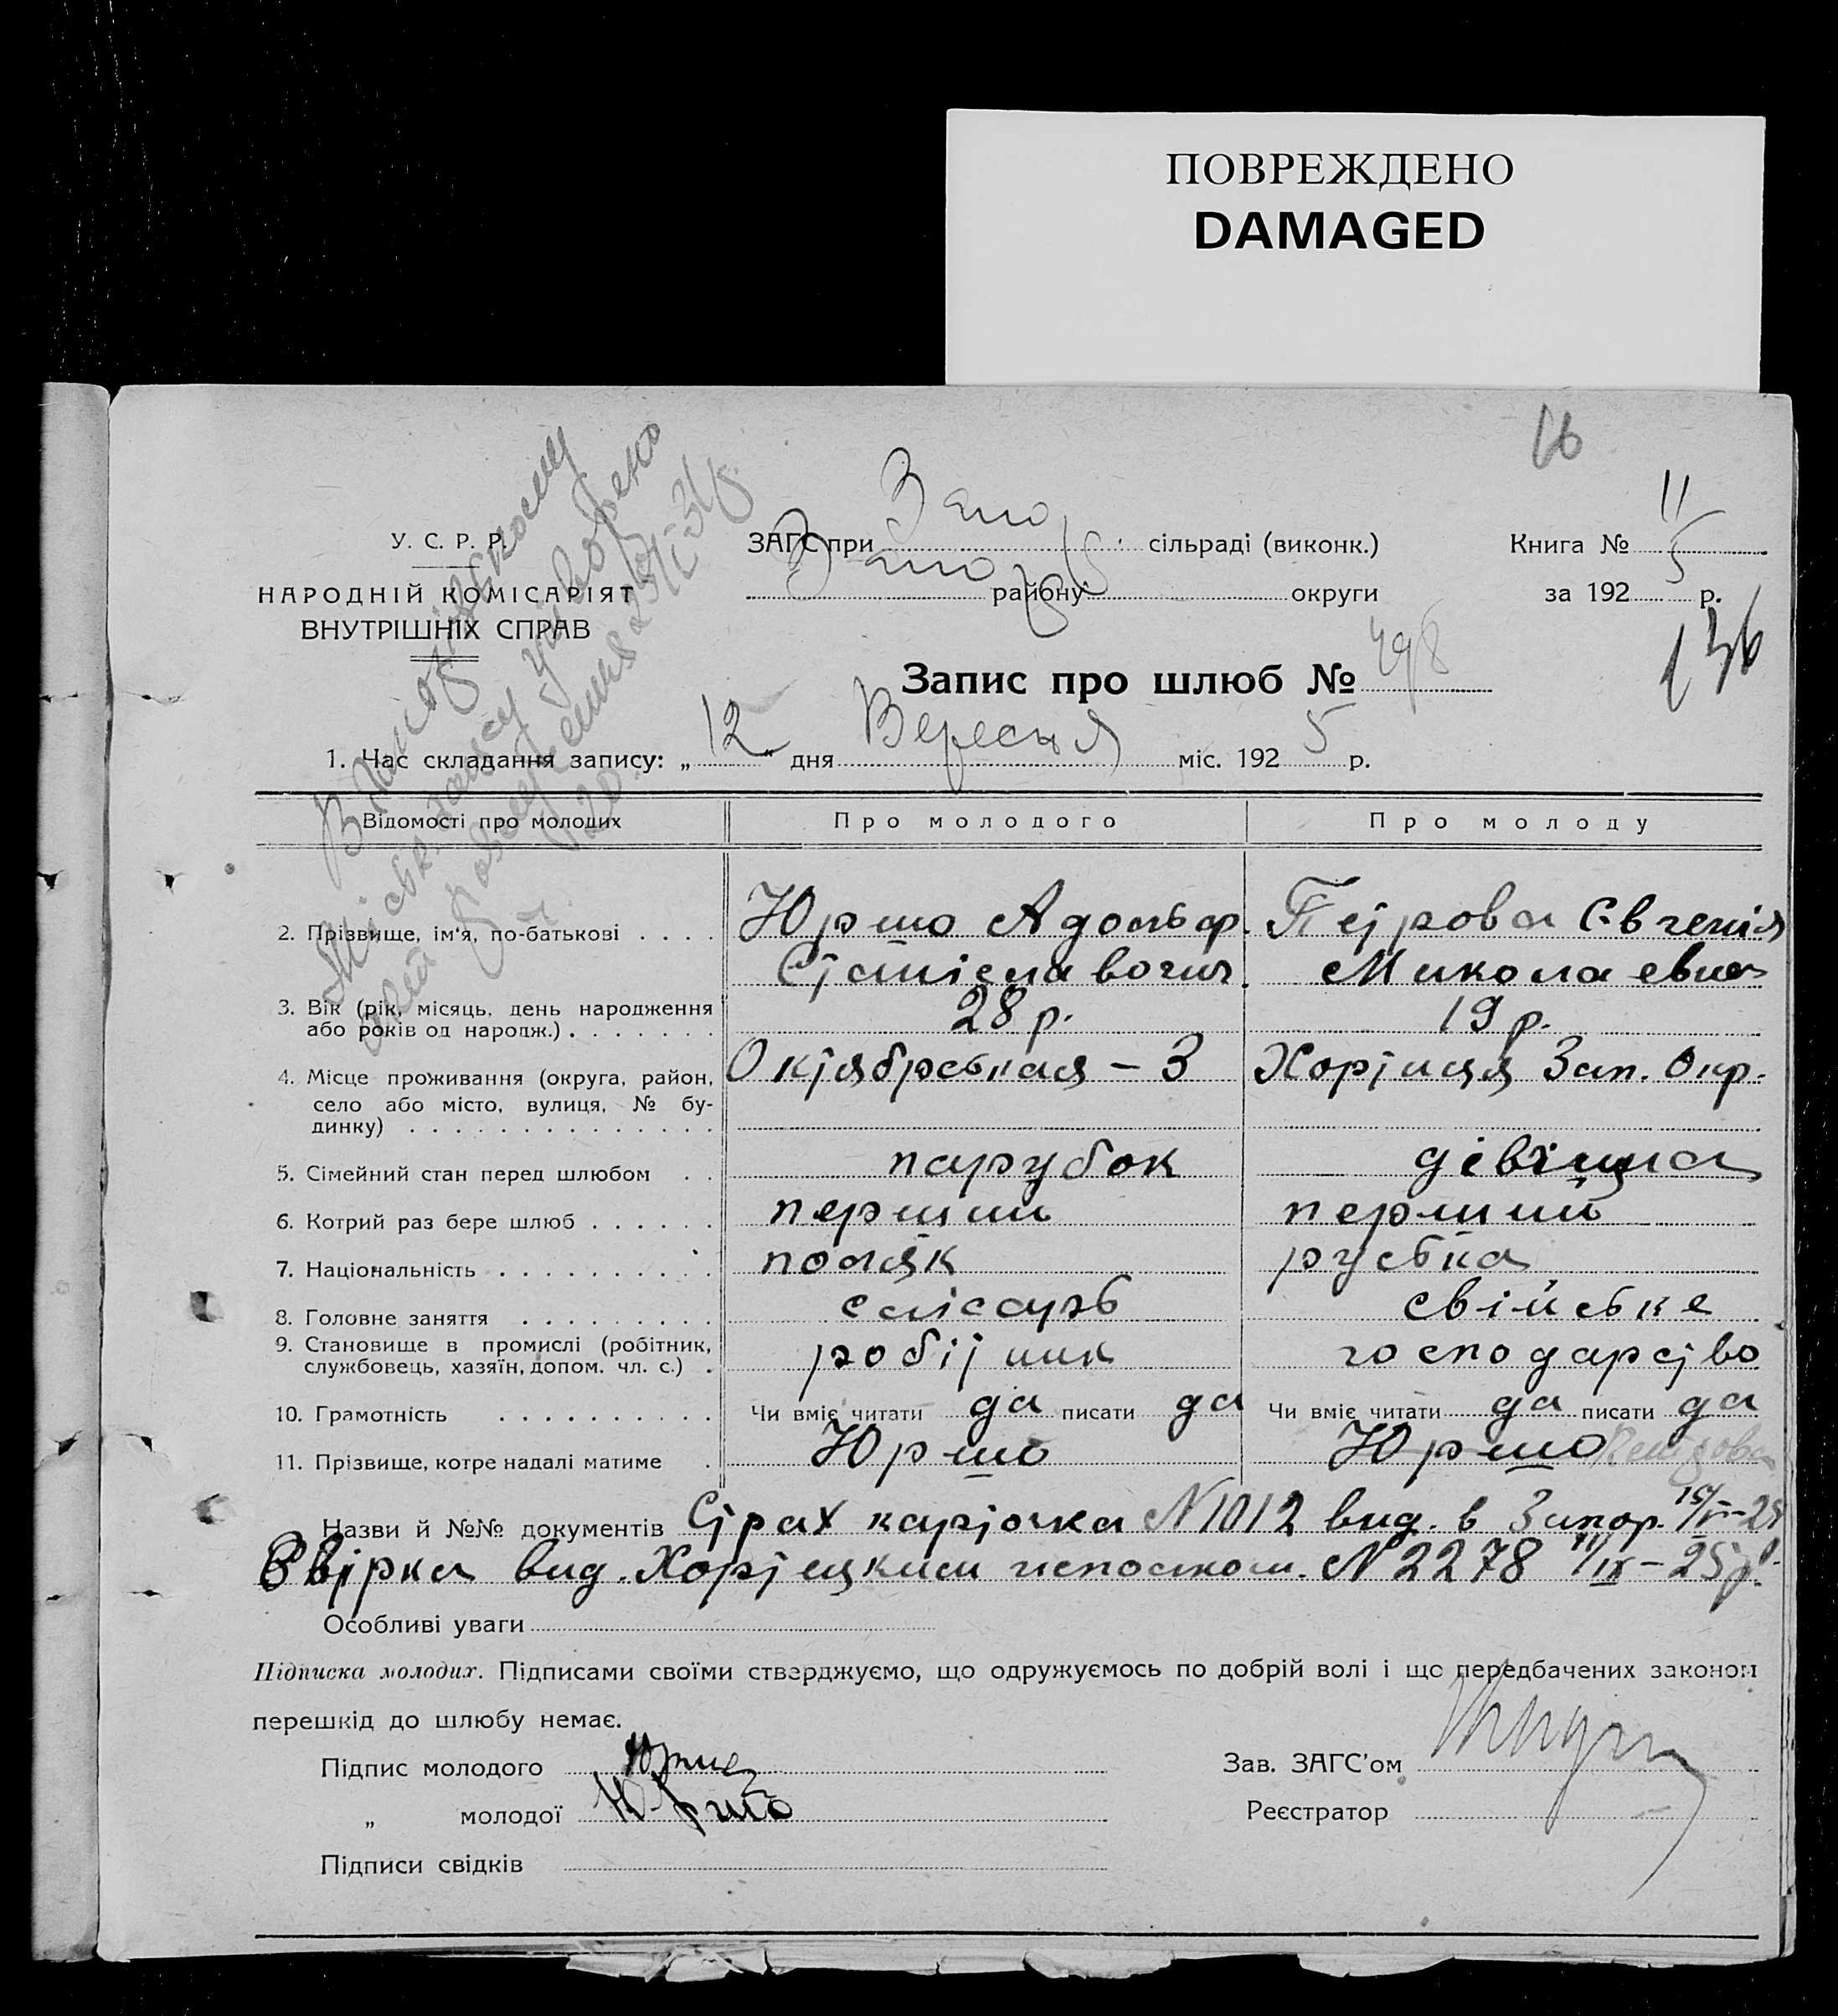 ПОВРЕЖДЕНО
DAMAGED
16
У. С. Р. Р.
НАРОДНІЙ КОМІСАРІЯТ
ВНУТРІШНІХ СПРАВ
ЗАГС при Запо сільраді (виконк.)
району округи
Книга № 11
за 1925 р.
136
Запис про шлюб № 498
1. Час складання запису: „12“ дня Вересня міс. 1925 р.
Відомості про молодих Про молодого Про молоду
2. Прізвище, ім'я, по-батькові . . . . Юршо Адольф Петрова Євгенія
Станіславович Миколаевна
3. Вік (рік, місяць, день народження
або років од народж.) . . . . . . . 28 р. 19 р.
4. Місце проживання (округа, район, Октябрськая – 3 Хортиця Зап. Окр.
село або місто, вулиця, № бу-
динку) . . . . . . . . . . . . . .
5. Сімейний стан перед шлюбом . . парубок дівиця
6. Котрий раз бере шлюб . . . . . . перший перший
7. Національність . . . . . . . . . . поляк руська
8. Головне заняття . . . . . . . . . слісарь свійське
9. Становище в промислі (робітник,
службовець, хазяїн, допом. чл. с.) . робітник господарство
10. Грамотність . . . . . . . . . . Чи вміє читати да писати да Чи вміє читати да писати да
11. Прізвище, котре надалі матиме . Юршо Юршо
Назви й №№ документів Страх карточка N 1012 вид. в Запор.
вид. Хортицким N 2278 11/IX – 25 р.
Особливі уваги
Підписка молодих. Підписами своїми стверджуємо, що одружуємось по добрій волі і що передбачених законом
перешкід до шлюбу немає.
Підпис молодого
„ молодої Юршо
Підписи свідків
Зав. ЗАГС'ом
Реєстратор